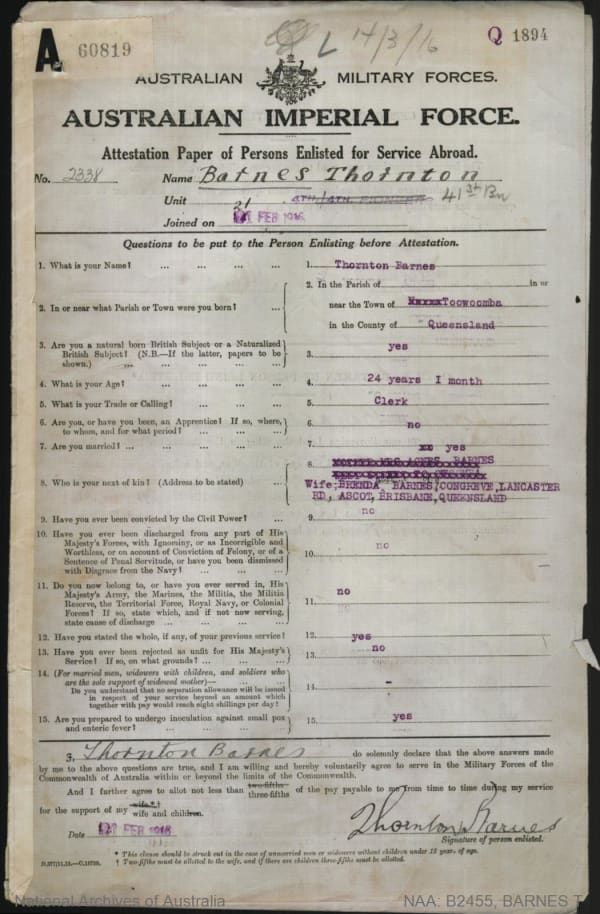 A 60819
L 14/3/16
Q 1894
AUSTRALIAN MILITARY FORCES.
AUSTRALIAN IMPERIAL FORCE.
Attestation Paper of Persons Enlisted for Service Abroad.
No. 2338 Name Barnes Thornton
Unit 41st Bn
Joined on 21 FEB 1916
Questions to be put to the Person Enlisting before Attestation.
1. What is your Name? ... ... ... ... 1. Thornton Barnes
2. In or near what Parish or Town were you born? ... 2. In the Parish of in or
near the Town of Toowoomba
in the County of Queensland
3. Are you a natural born British Subject or a Naturalized
British Subject? (N.B.—If the latter, papers to be
shown.) ... ... ... ... 3. yes
4. What is your Age? ... ... ... 4. 24 years I month
5. What is your Trade or Calling? ... ... ... 5. Clerk
6. Are you, or have you been, an Apprentice? If so, where,
to whom, and for what period? ... ... ... 6. no
7. Are you married? ... ... ... ... 7. yes
8. Who is your next of kin? (Address to be stated) ... 8. MRS AGNES BARNES
Wife; BRENDA BARNES, CONGREVE, LANCASTER
RD, ASCOT, BRISBANE, QUEENSLAND
9. Have you ever been convicted by the Civil Power? ... 9. no
10. Have you ever been discharged from any part of His
Majesty's Forces, with Ignominy, or as Incorrigible and
Worthless, or on account of Conviction of Felony, or of a
Sentence of Penal Servitude, or have you been dismissed
with Disgrace from the Navy? ... ... ... 10. no
11. Do you now belong to, or have you ever served in, His
Majesty's Army, the Marines, the Militia, the Militia
Reserve, the Territorial Force, Royal Navy, or Colonial
Forces? If so, state which, and if not now serving,
state cause of discharge ... ... ... 11. no
12. Have you stated the whole, if any, of your previous service? 12. yes
13. Have you ever been rejected as unfit for His Majesty's
Service? If so, on what grounds? ... ... ... 13. no
14. (For married men, widowers with children, and soldiers who
are the sole support of widowed mother)— ... ...
Do you understand that no separation allowance will be issued
in respect of your service beyond an amount which
together with pay would reach eight shillings per day? 14. -
15. Are you prepared to undergo inoculation against small pox
and enteric fever? ... ... ... ... 15. yes
I, Thornton Barnes do solemnly declare that the above answers made
by me to the above questions are true, and I am willing and hereby voluntarily agree to serve in the Military Forces of the
Commonwealth of Australia within or beyond the limits of the Commonwealth.
And I further agree to allot not less than two-fifths three-fifths of the pay payable to me from time to time during my service
for the support of my wife*† wife and children.
Date 21 FEB 1916
Thornton Barnes
Signature of person enlisted.
* This clause should be struck out in the case of unmarried men or widowers without children under 18 year. of age.
† Two-fifths must be allotted to the wife, and if there are children three-fifths must be allotted.
National Archives of Australia
NAA: B2455, BARNES T